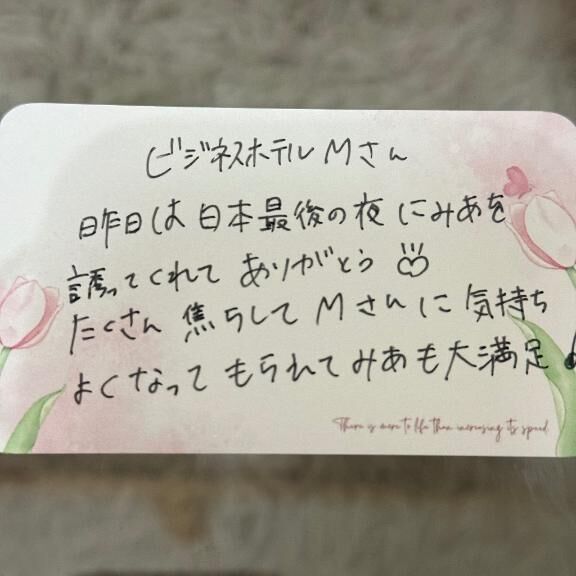 ビジネスホテル Mさん
昨日は日本最後の夜にみあを
誘ってくれて ありがとう
たくさん 焦らして Mさんに気持ち
よくなって もられてみあも大満足♪
There is more to life than increasing its speed.